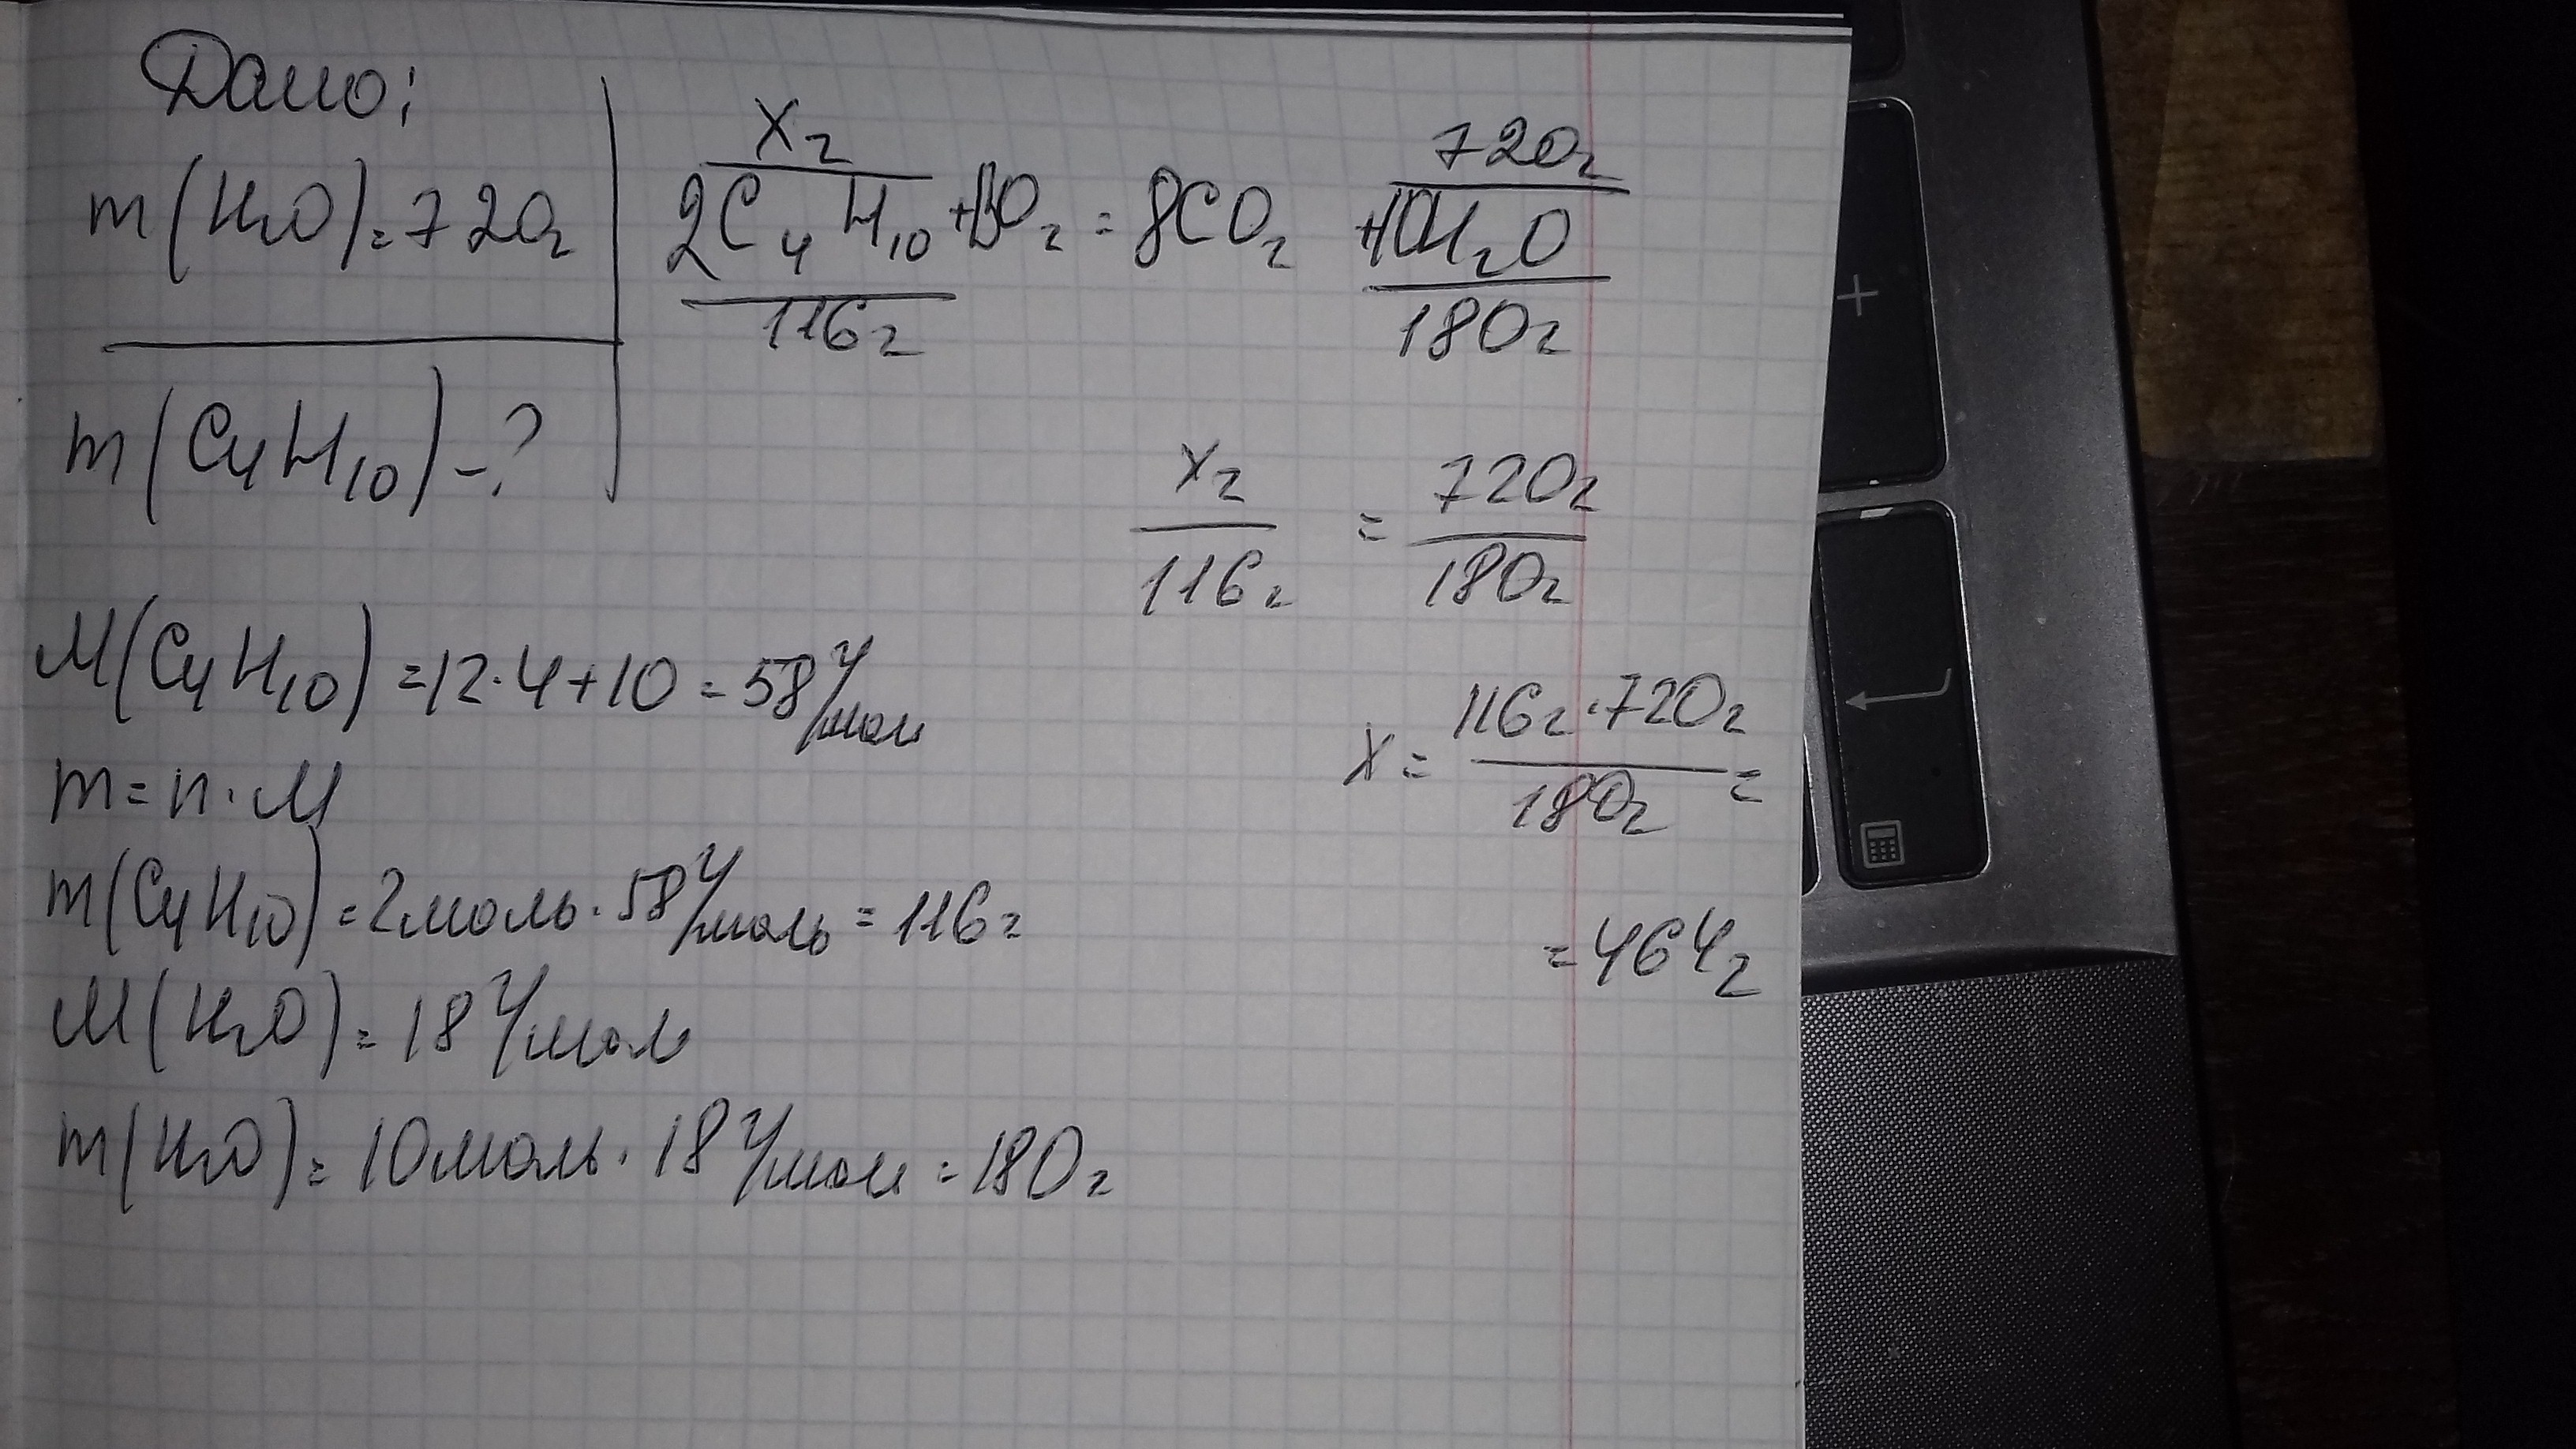 Дано:
m(H₂O)=720г
m(C₄H₁₀)-?
xг 720г
2C₄H₁₀+13O₂=8CO₂+10H₂O
116г 180г
xг/116г = 720г/180г
x = 116г·720г/180г =
=464г
M(C₄H₁₀)=12·4+10=58г/моль
m=n·M
m(C₄H₁₀)=2моль·58г/моль=116г
M(H₂O)=18г/моль
m(H₂O)=10моль·18г/моль=180г
+